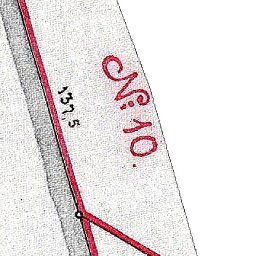 137,5
№ 10.